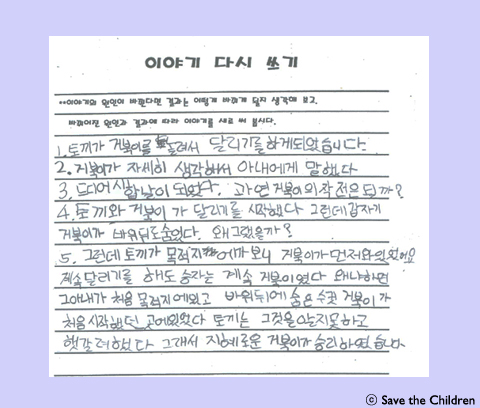 이야기 다시 쓰기
**이야기의 원인이 바뀐다면 결과는 어떻게 바뀌게 될지 생각해 보고,
바뀌어진 원인과 결과에 따라 이야기를 새로 써 봅시다.
1. 토끼가 거북이를 놀려서 달리기를하게되었습니다.
2. 거북이가 자세히 생각해서 아내에게 말했다
3. 드디어시합날이 되었다. 과연 거북이의작전은되까?
4. 토끼와 거북이 가 달리기를 시작했다 그런데갑자기
거북이가 바위뒤로숨었다. 왜그랬을까?
5. 그런데 토끼가 목적지 에가보니 거북이가먼저와있었어요
계속달리기를 해도 승자는 계속 거북이였다 왜냐하면
그아내가 처음 목적지에있고 바위뒤에 숨은수컷 거북이가
처음시작했던 곳에있었다 토끼는 그것을 알지못하고
헷갈려했다 그래서 지혜로운 거북이가승리하였습니다
© Save the Children